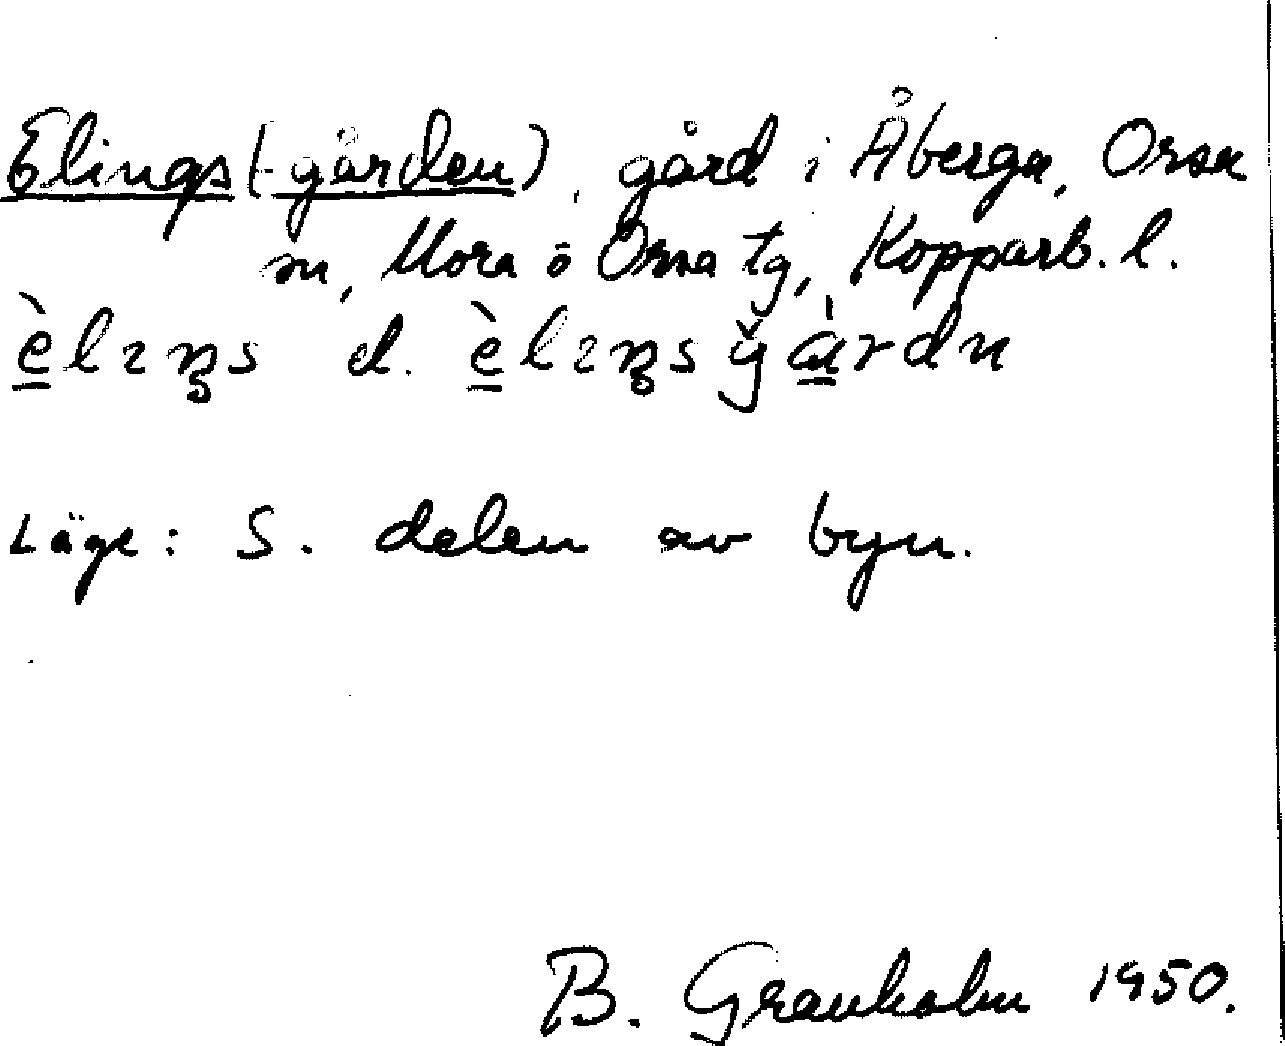 Elings(-gården), gård i Åberga, Orsa
sn, Mora o Orsa tg, Kopparb. l.
èlɪŋs el. èlɪŋsgàrdn
Läge: S. delen av byn.
B. Granholm 1950.